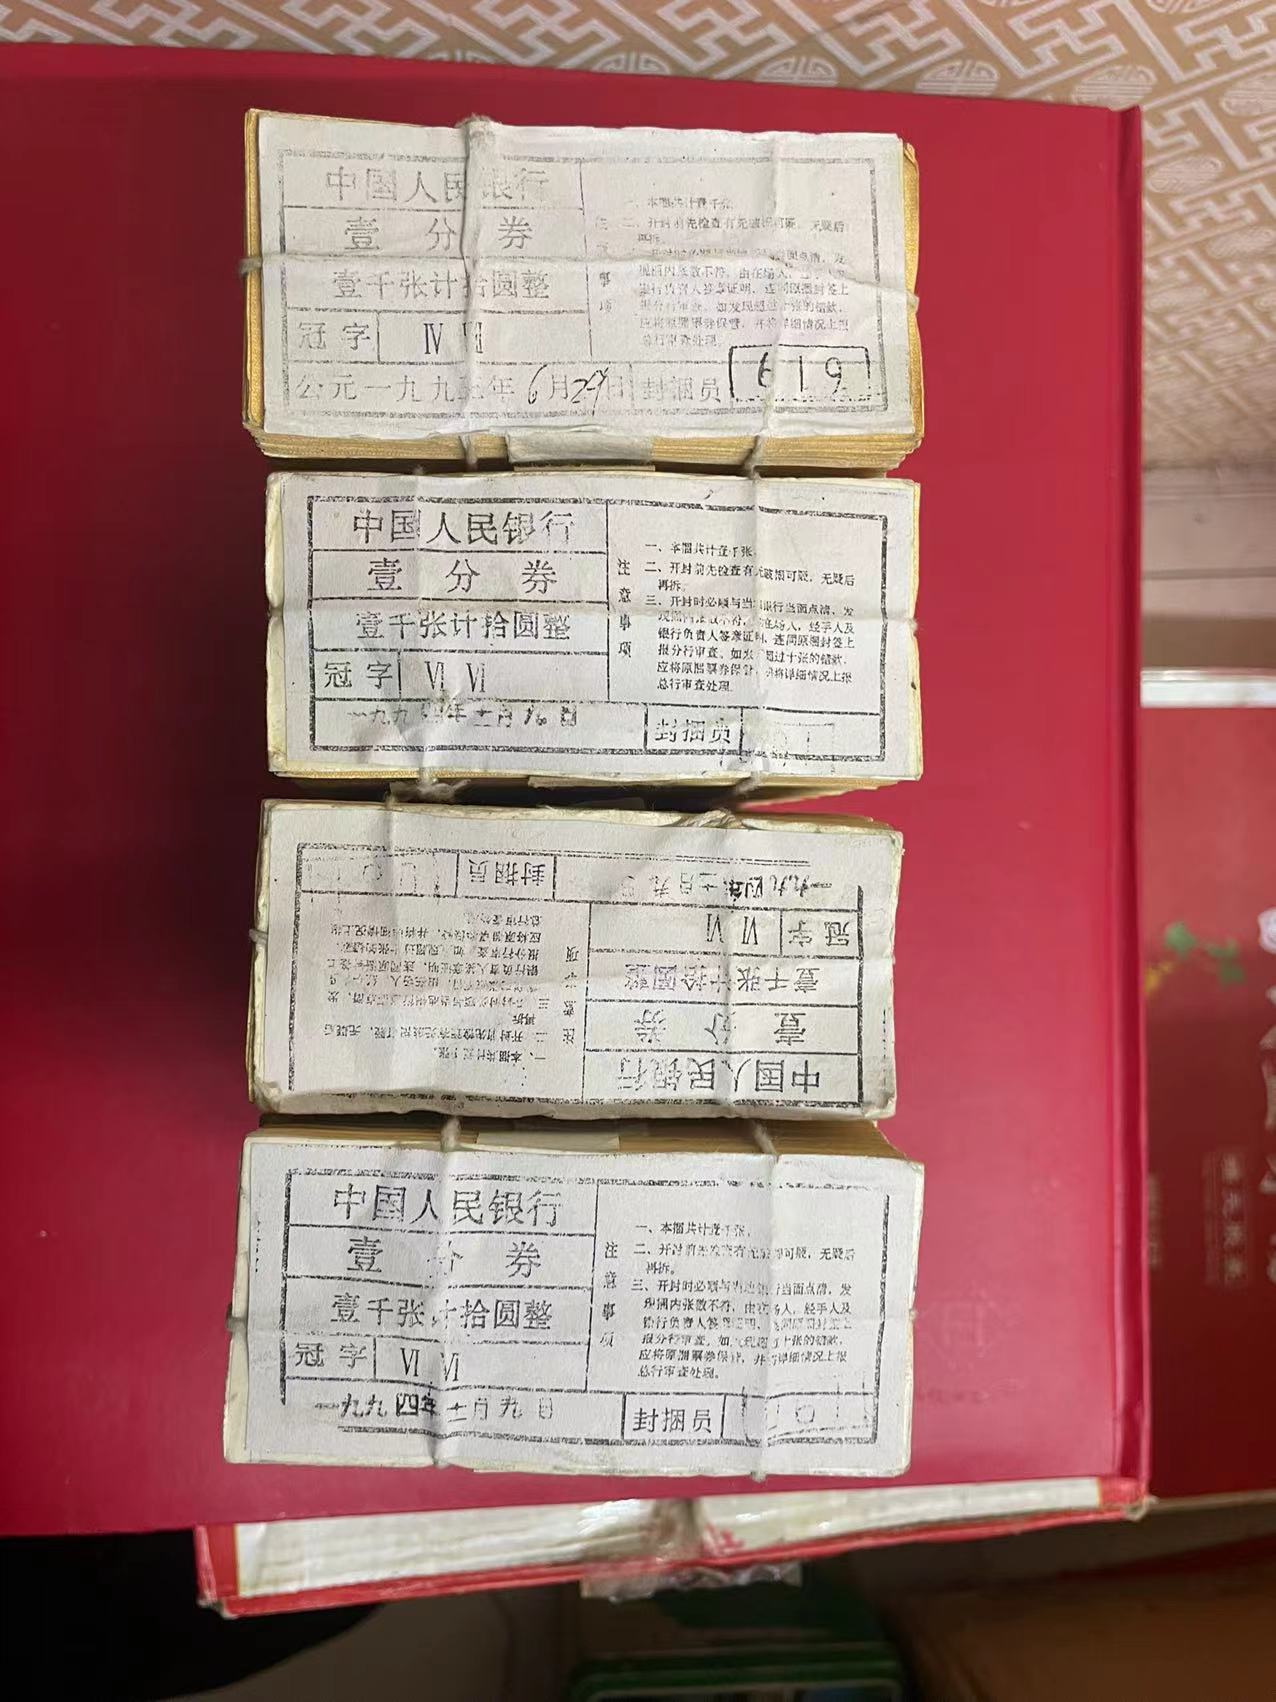 中国人民银行
壹分券
壹千张计拾圆整
冠字 Ⅳ Ⅶ
公元一九九三年6月29日 封捆员 619
注意事项
一、本捆共计壹千张。
二、开封前先检查有无破捆可疑，无疑后
再拆。
现捆内张数不符，由在场人，经手人及
银行负责人签章证明，连同原捆封签上
报分行审查，如发现超过十张的错款，
应将原捆票券保管，并将详细情况上报
总行审查处理。
中国人民银行
壹分券
壹千张计拾圆整
冠字 Ⅵ Ⅵ
一九九四年十二月九日 封捆员
注意事项
一、本捆共计壹千张。
二、开封前先检查有无破捆可疑，无疑后
再拆。
三、开封时必须与当地银行当面点清，发
现捆内张数不符，由在场人，经手人及
银行负责人签章证明，连同原捆封签上
报分行审查，如发现超过十张的错款，
应将原捆票券保管，并将详细情况上报
总行审查处理。
中国人民银行
壹分券
壹千张计拾圆整
冠字 Ⅵ Ⅵ
一九九四年十二月九日 封捆员
注意事项
一、本捆共计壹千张。
二、开封前先检查有无破捆可疑，无疑后
再拆。
中国人民银行
壹分券
壹千张计拾圆整
冠字 Ⅵ Ⅵ
一九九四年十二月九日 封捆员
注意事项
一、本捆共计壹千张。
二、开封前先检查有无破捆可疑，无疑后
再拆。
三、开封时必须与当地银行当面点清，发
现捆内张数不符，由在场人，经手人及
银行负责人签章证明，连同原捆封签上
报分行审查，如发现超过十张的错款，
应将原捆票券保管，并将详细情况上报
总行审查处理。